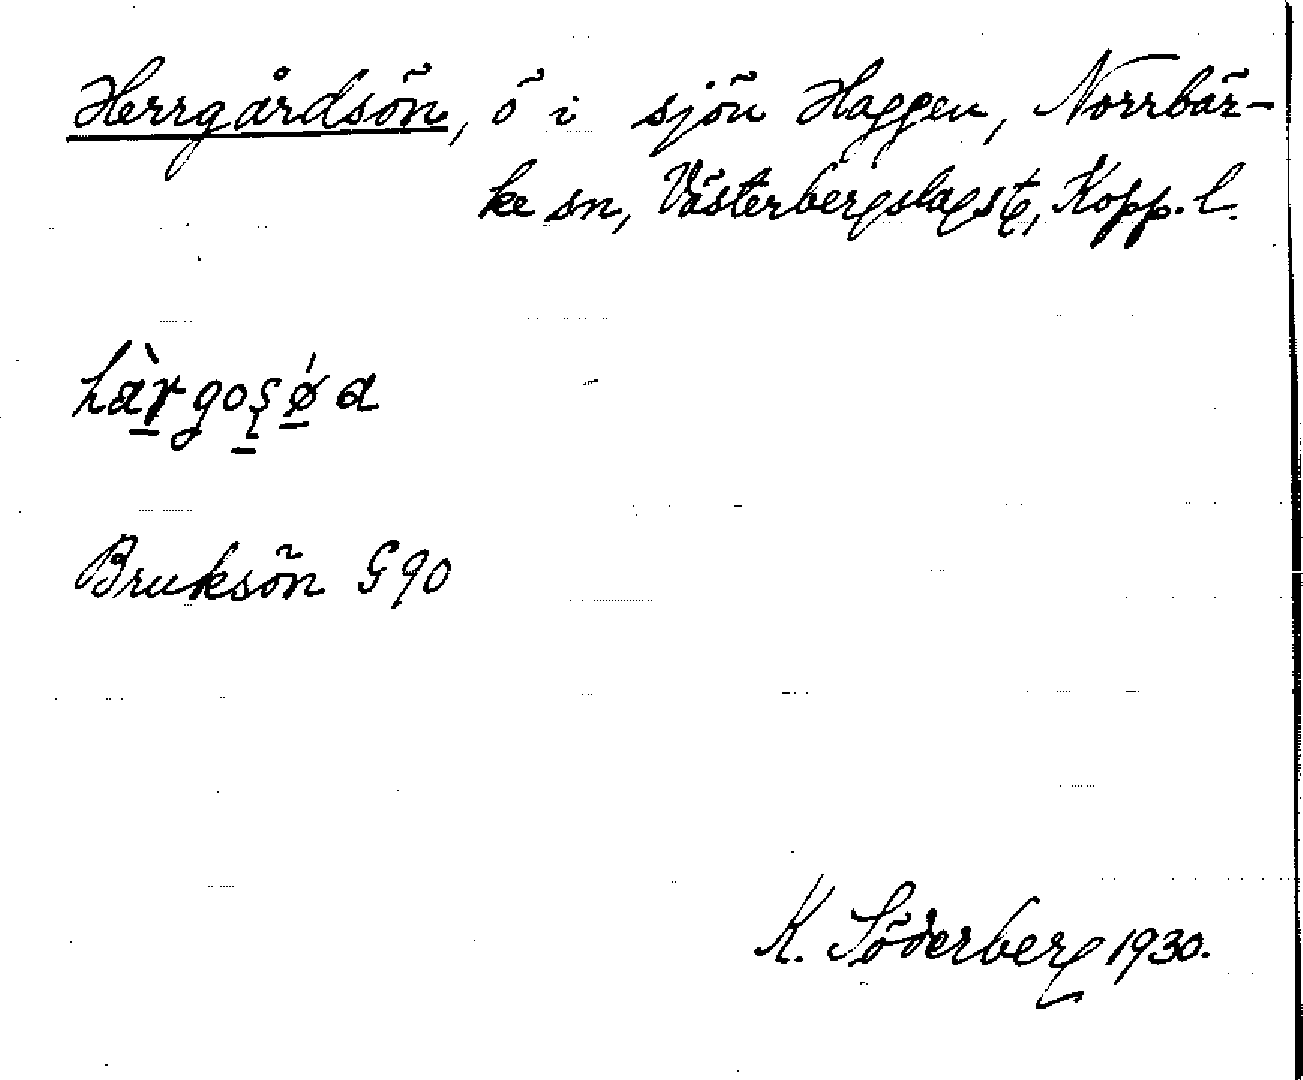 Herrgårdsön, ö i sjön Haggen, Norrbär-
ke sn, Västerbergslags , Kopp. l.
Bruksön G 90
K. Söderberg 1930.